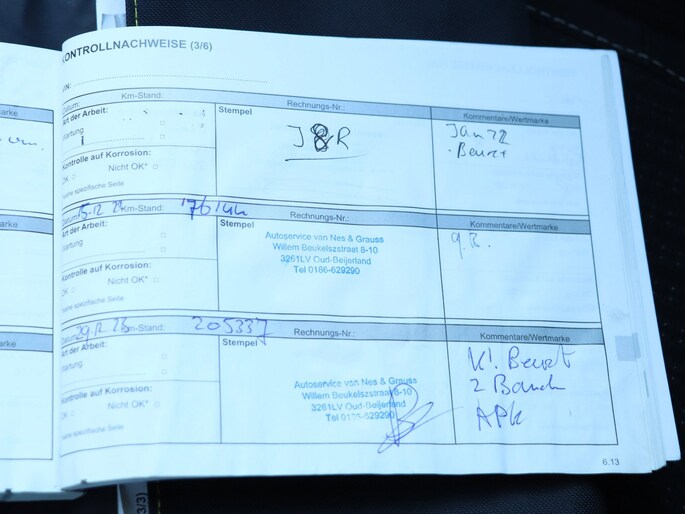 ONTROLLNACHWEISE (3/6)
Datum: Km-Stand: Stempel Rechnungs-Nr.: Kommentare/Wertmarke
Art der Arbeit:
Wartung
Kontrolle auf Korrosion:
OK Nicht OK*
J & R
Jan
Beurt
Datum Km-Stand: Stempel Rechnungs-Nr.: Kommentare/Wertmarke
Art der Arbeit:
Wartung
Kontrolle auf Korrosion:
OK Nicht OK*
Autoservice van Nes & Grauss
Willem Beukelszstraat 8-10
3261LV Oud-Beijerland
Tel 0186-629290
Km-Stand: 205337 Stempel Rechnungs-Nr.: Kommentare/Wertmarke
Art der Arbeit:
Wartung
Kontrolle auf Korrosion:
OK Nicht OK*
siehe spezifische Seite
Autoservice van Nes & Grauss
Willem Beukelszstraat 8-10
3261LV Oud-Beijerland
Tel 0186-629290
K! Beurt
2 Banden
APK
6.13